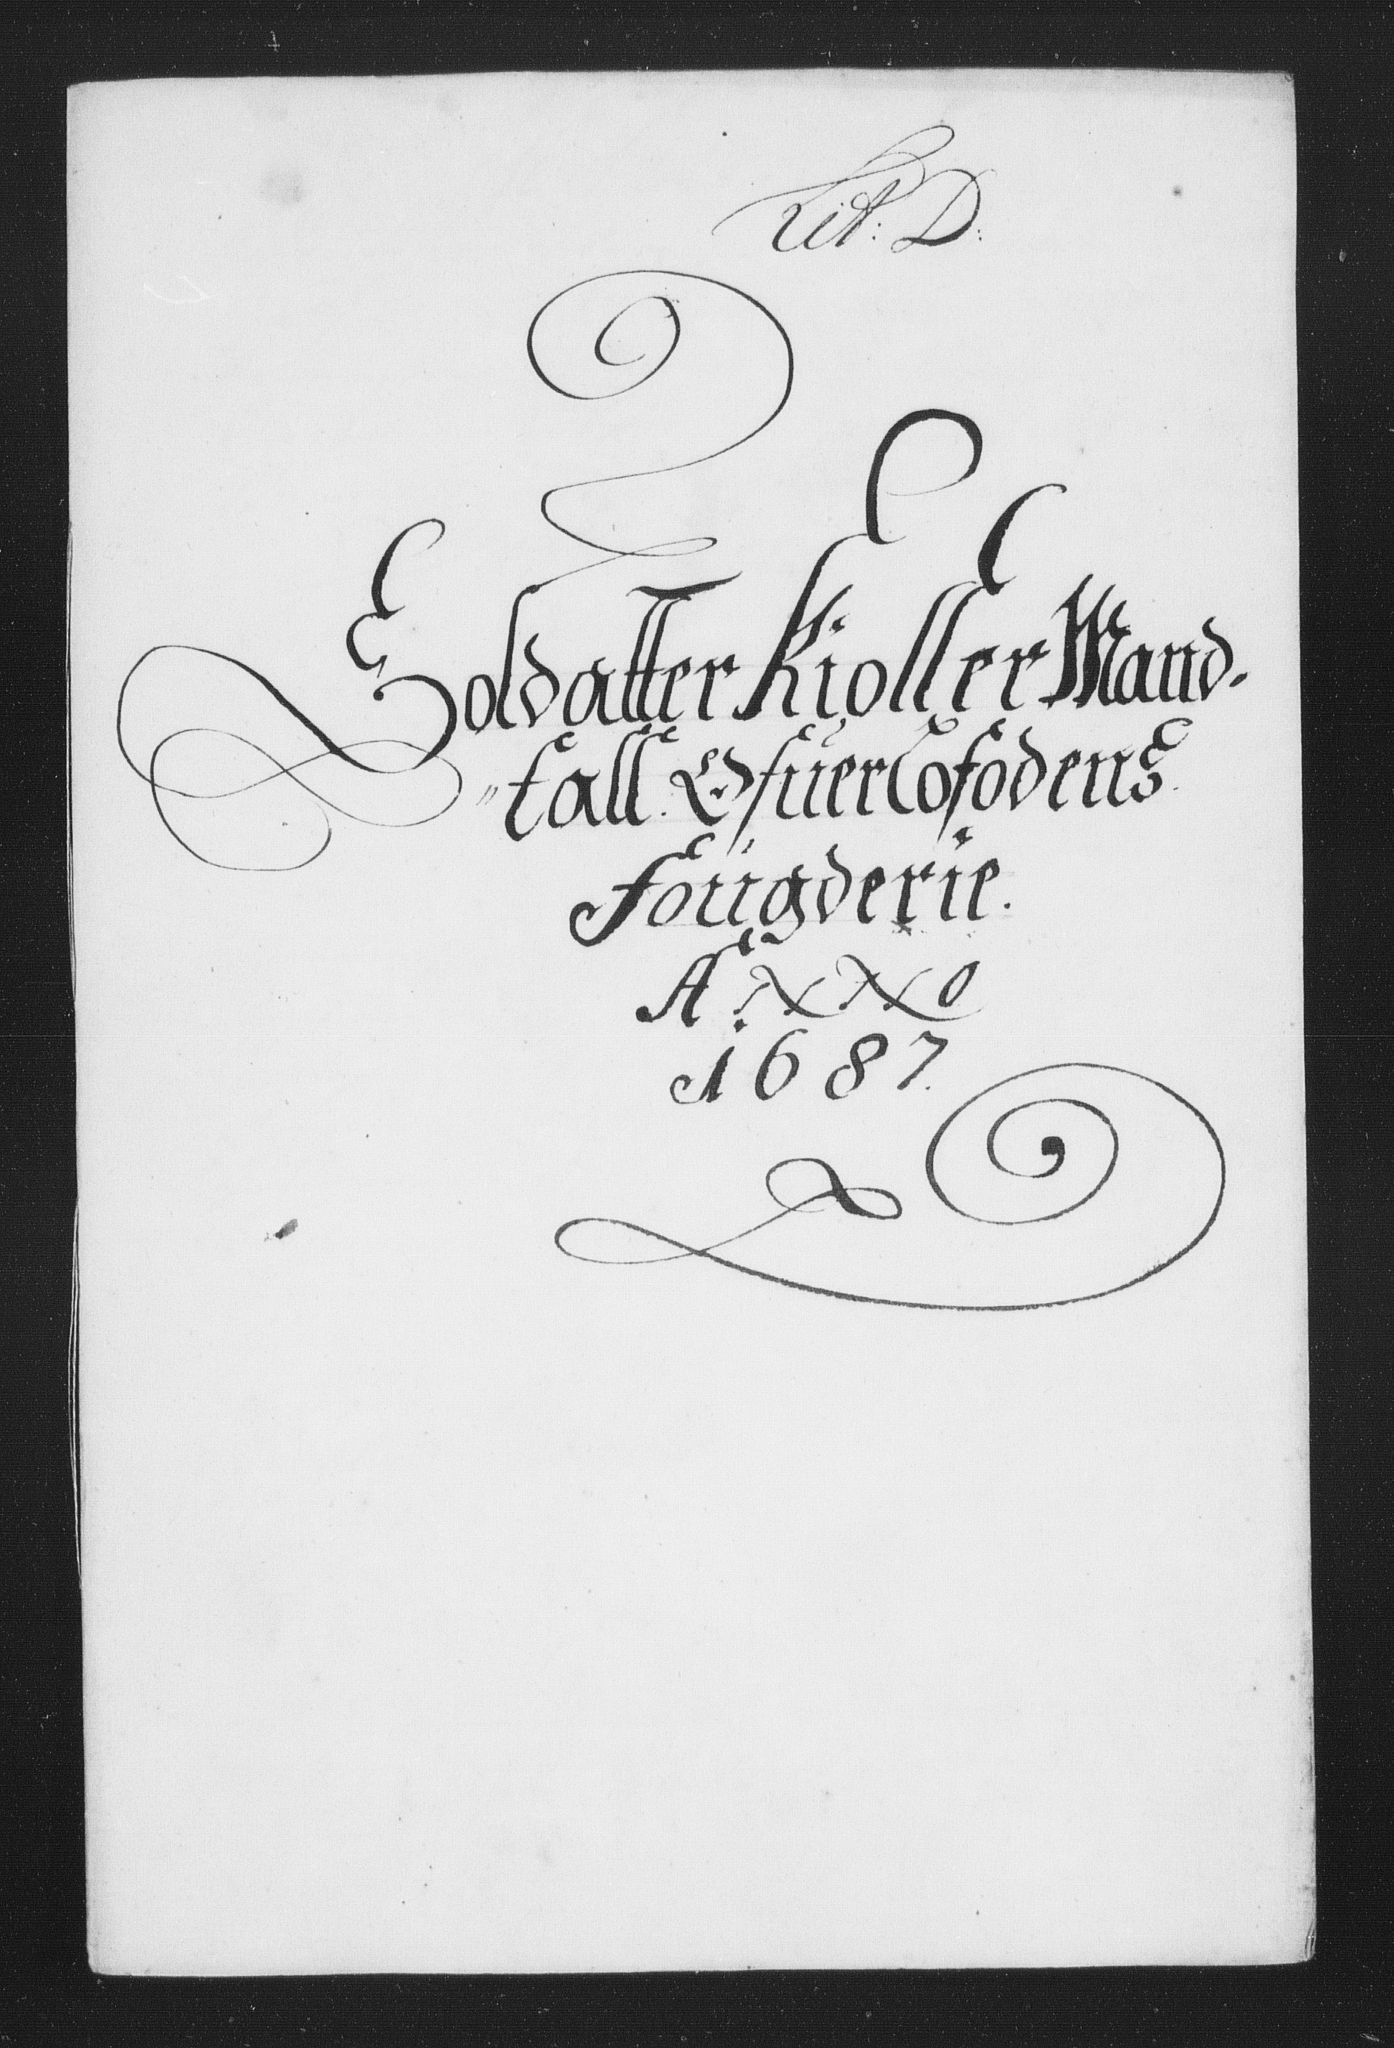 Lit: D:
Soldatter Kioller Mand-
"tall. Ofuer Lofodens
fougderie.
ANNO
1687.